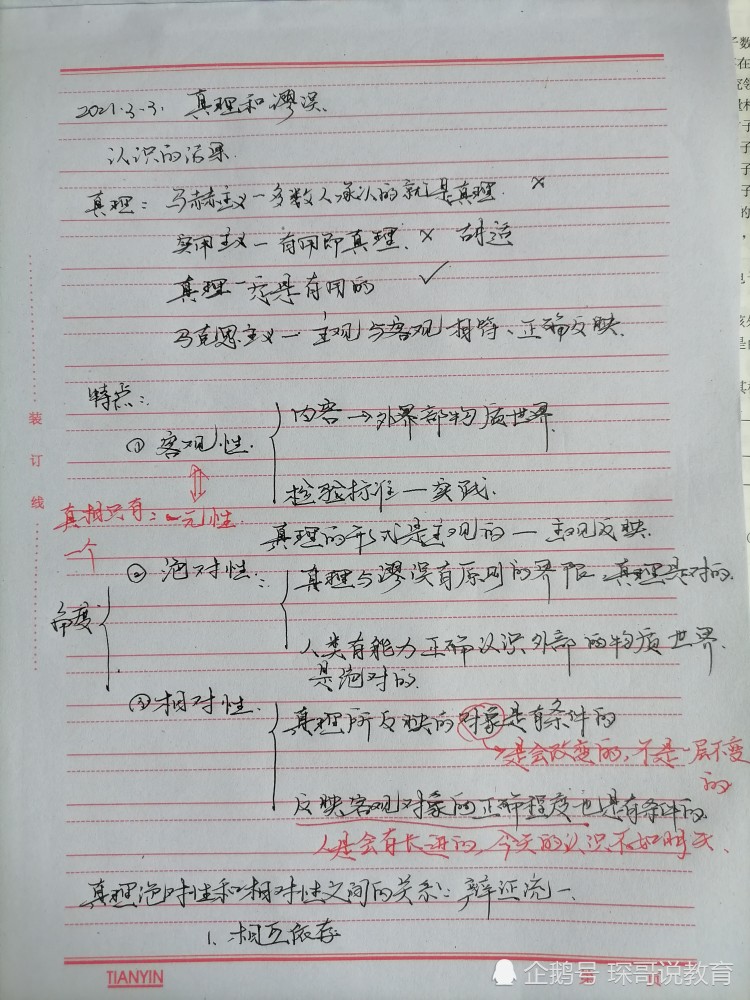 2021.3.3. 真理和谬误.
认识的结果.
真理: 马赫主义—多数人承认的就是真理. ×
实用主义—有用即真理. × 胡适
真理一定是有用的 ✓
马克思主义—主观与客观相符、正确反映.
特点:
① 客观性.
内容→外界部物质世界.
检验标准—实践.
真相只有: 一元性.
一个
真理的形式是主观的—主观反映.
② 绝对性:
真理与谬误有原则的界限, 真理是对的.
角度
人类有能力正确认识外部的物质世界.
是绝对的.
③ 相对性.
真理所反映的对象是有条件的
是会改变的, 不是一层不变
的
反映客观对象的正确程度也是有条件的.
人是会有长进的, 今天的认识不如明天.
真理绝对性和相对性之间的关系: 辩证统一.
1. 相互依存
装
订
线
TIANYIN
企鹅号 琛哥说教育